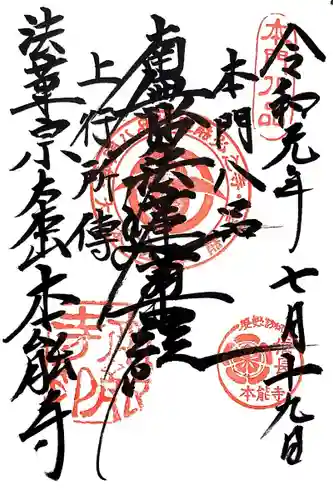 本門八品
令和元年
七月十九日
本門八品
南無妙法蓮華経
上行所傳
法華宗大本山本能寺
信長
本能寺